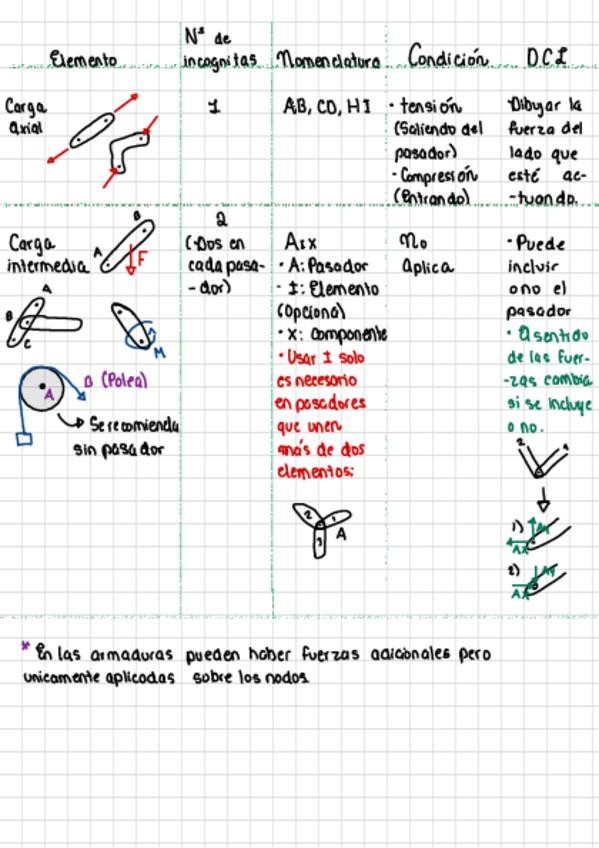 Elemento
N° de
incognitas
Nomenclatura
Condición
DCL
Carga
axial
1
AB, CD, HI
· tensión
(Saliendo del
pasador)
- Compresión
(Entrando)
·Dibujar la
fuerza del
lado que
esté ac-
-tuando.
Carga
intermedia
A
B
F
A
B
C
M
A
B (Polea)
Se recomienda
sin pasador
2
(Dos en
cada pasa-
-dor)
AIX
· A: Pasador
· I: Elemento
(Opcional)
· X: Componente
· Usar I solo
es necesario
en pasadores
que unen
más de dos
elementos:
2
1
3
A
No
Aplica
· Puede
incluir
o no el
pasador
· El sentido
de las fuer-
-zas cambia
si se incluye
o no.
2
1
1)
Ay
Ax
2)
Ay
Ax
* En las armaduras pueden haber fuerzas adicionales pero
unicamente aplicadas sobre los nodos.